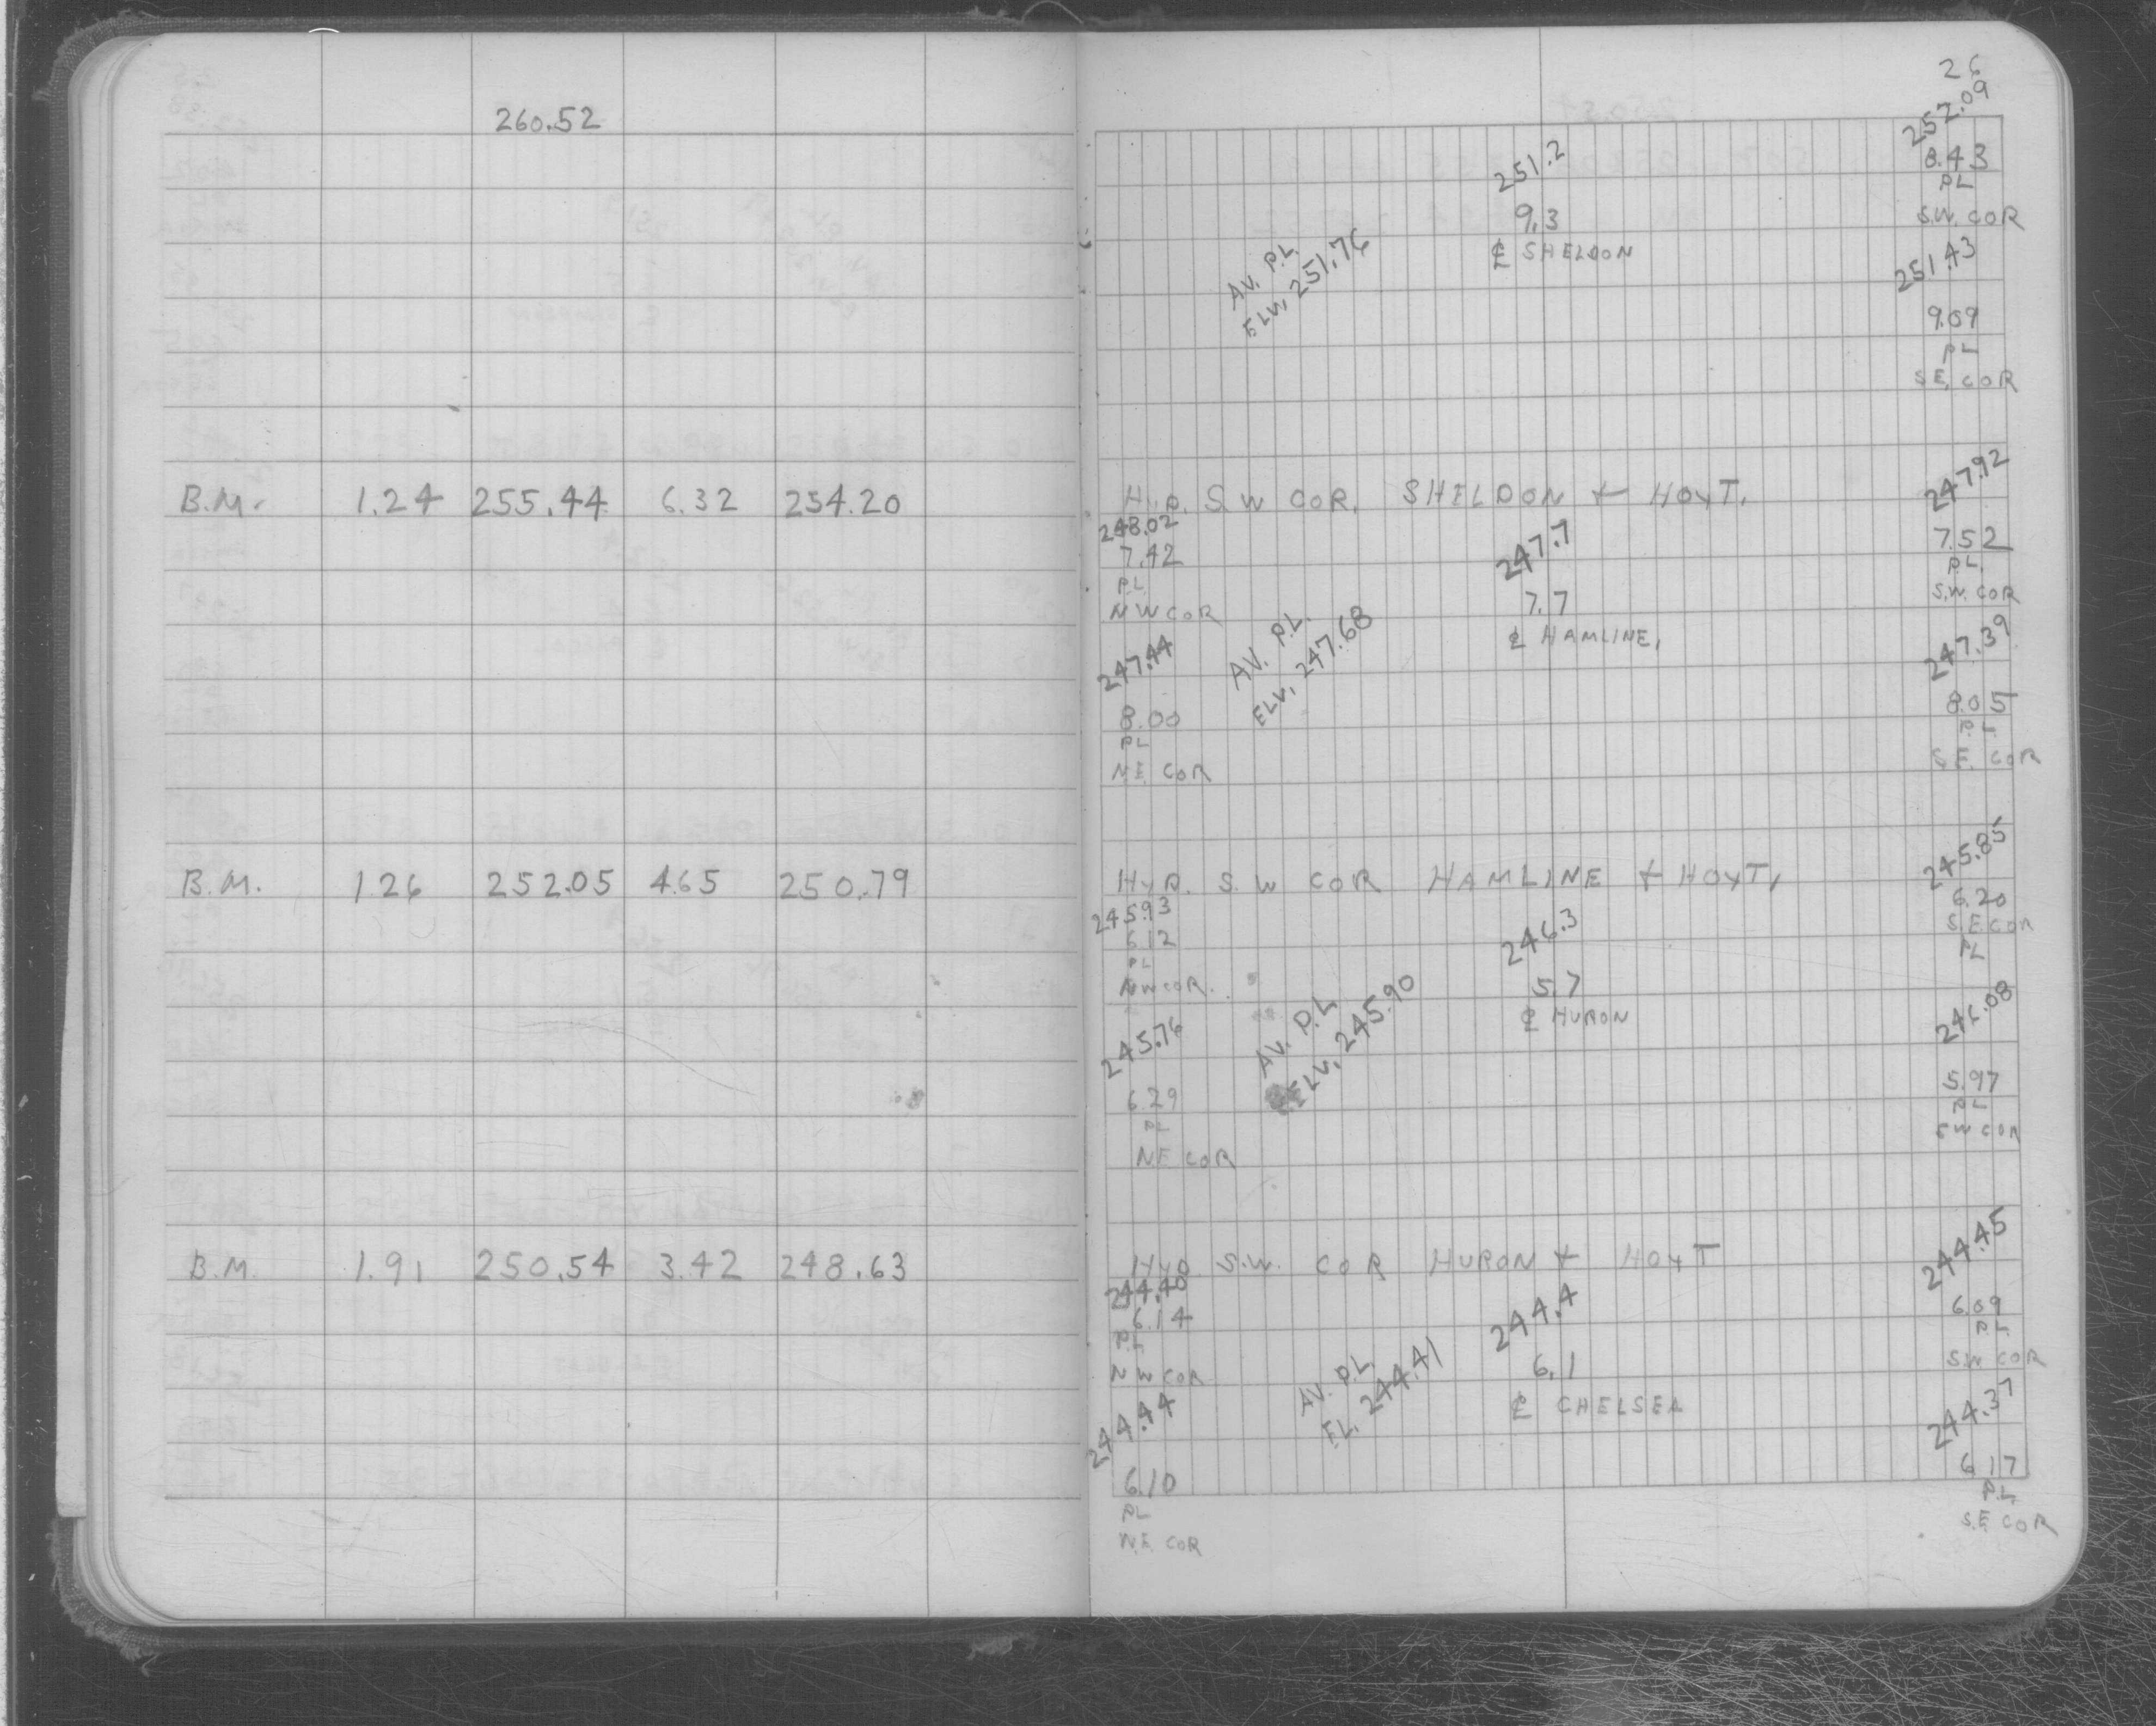 260.52
B.M. 1.24 255.44 6.32 254.20
B.M. 1.26 252.05 4.65 250.79
B.M. 1.91 250.54 3.42 248.63
26
252.09
8.43
PL
S.W. COR
251.2
9.3
℄ SHELDON
AV. P.L.
ELV. 251.76
251.43
9.09
PL
S.E. COR
Hyd. S.W COR. SHELDON & HOYT.
247.92
248.02
7.42
PL
N W COR
247.7
7.7
℄ HAMLINE,
7.52
P.L.
S.W. COR
247.44
8.00
PL
N.E. COR
AV. P.L.
ELV. 247.68
247.39
8.05
P.L.
S.E. COR
HYD. S.W COR HAMLINE & HOYT,
245.85
245.93
6.12
PL
NW COR.
246.3
5.7
℄ HURON
6.20
S.E. COR
PL
245.76
6.29
PL
NE COR
AV. P.L
ELV. 245.90
246.08
5.97
PL
SW COR
Hyd S.W. COR HURON & HOYT
244.45
244.40
6.14
P.L
N W COR
244.4
6.1
℄ CHELSEA
6.09
P.L.
SW COR
244.44
6.10
PL
N.E. COR
AV. P.L.
EL. 244.41
244.37
6.17
P.L,
S.E. COR